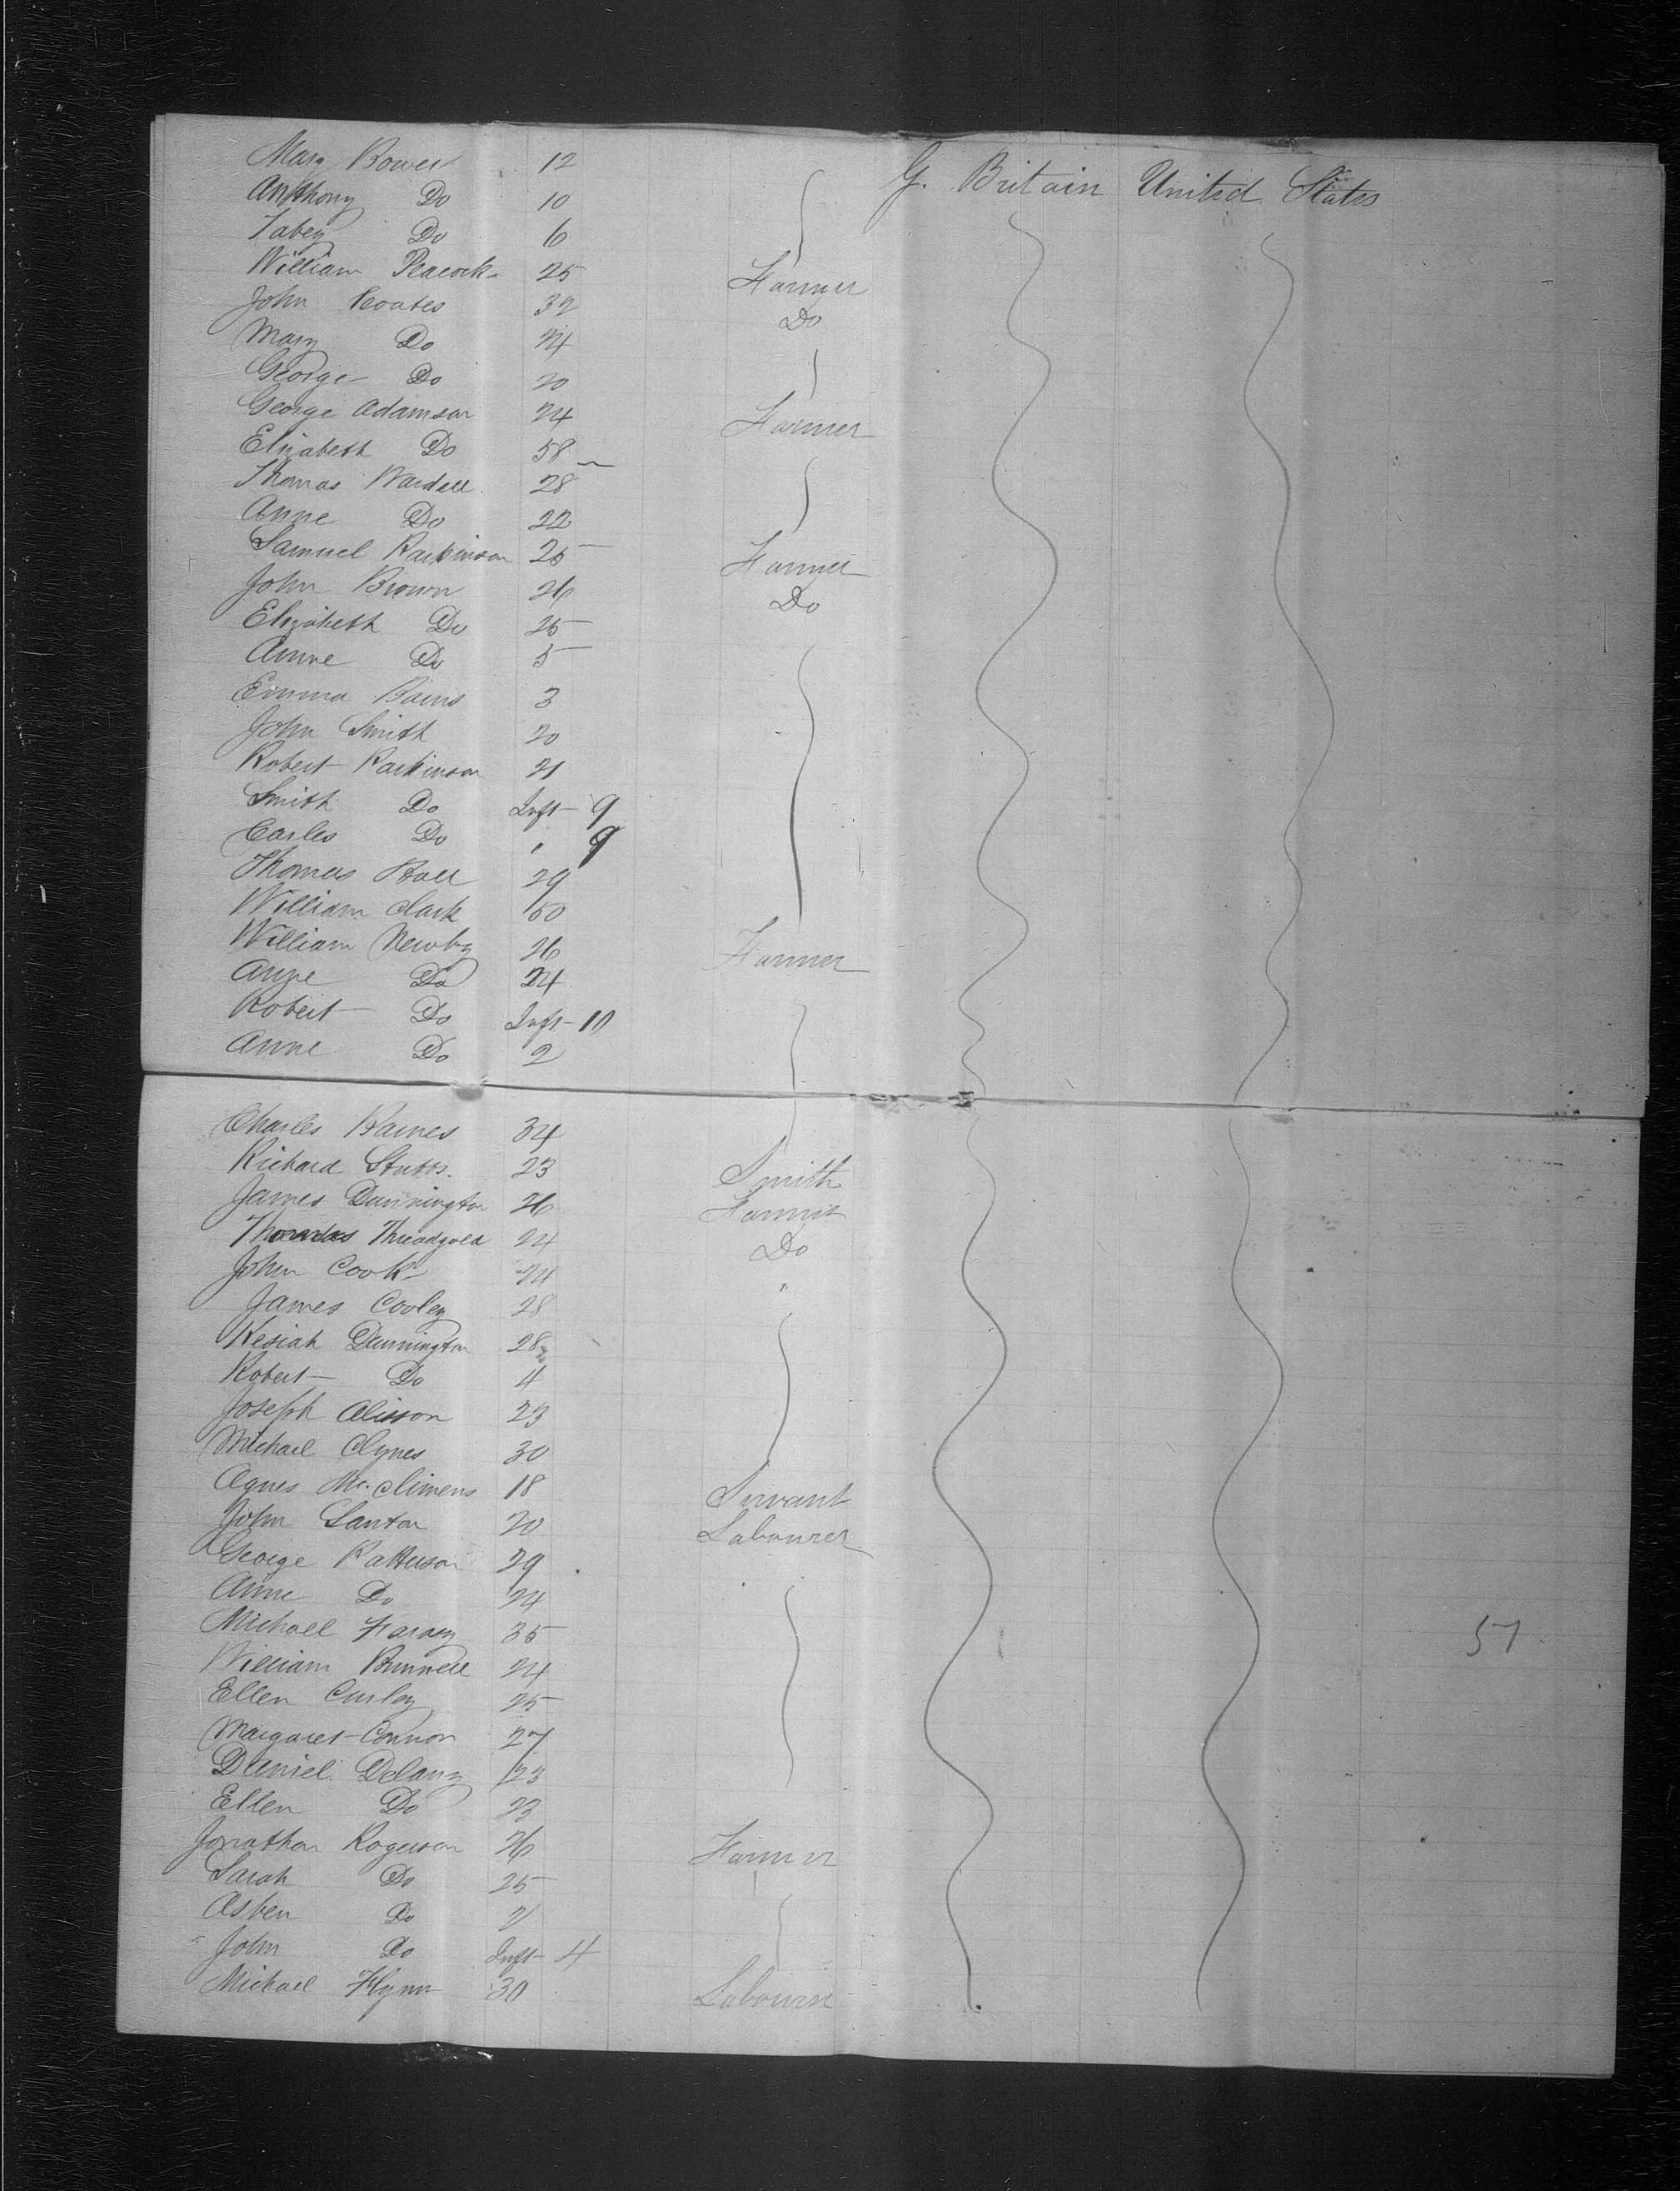 Mary Bower 12 G. Britain United States
Anthony Do 10
Tabey Do 6
William Peacock 25 Farmer
John Coates 32 Do
Mary Do 24
George Do 20
George Adamson 24 Farmer
Elizabeth Do 58
Thomas Wardell 28
Anne Do 22
Samuel Parkinson 25 Farmer
John Brown 26 Do
Elizabeth Do 25
Anne Do 5
Emma Bains 3
John Smith 20
Robert Parkinson 21
Smith Do Inft 9
Carles Do " 9
Thomas Hall 29
William Clark 50
William Newby 26 Farmer
Anne Do 24
Robert Do Inft 10
Anne Do 2
Charles Barnes 34
Richard Stubbs 23 Smith
James Dunnington 26 Farmer
Thomas Threadgold 24 Do
John Cook 24 "
James Cooley 28
Kesiah Dunnington 28
Robert Do 4
Joseph Alisson 23
Michael Clynes 30
Agnes Mc.Climens 18 Servant
John Santon 20 Labourer
George Patterson 29
Anne Do 24
Michael 35 57
William Bunnell 24
Ellen Curley 25
Margaret Connor 27
Daniel Delany 23
Ellen Do 23
Jonathan Rogerson 26 Farmer
Sarah Do 25
Asben Do 2
John Do Inft 4
Michael Flynn 30 Labourer